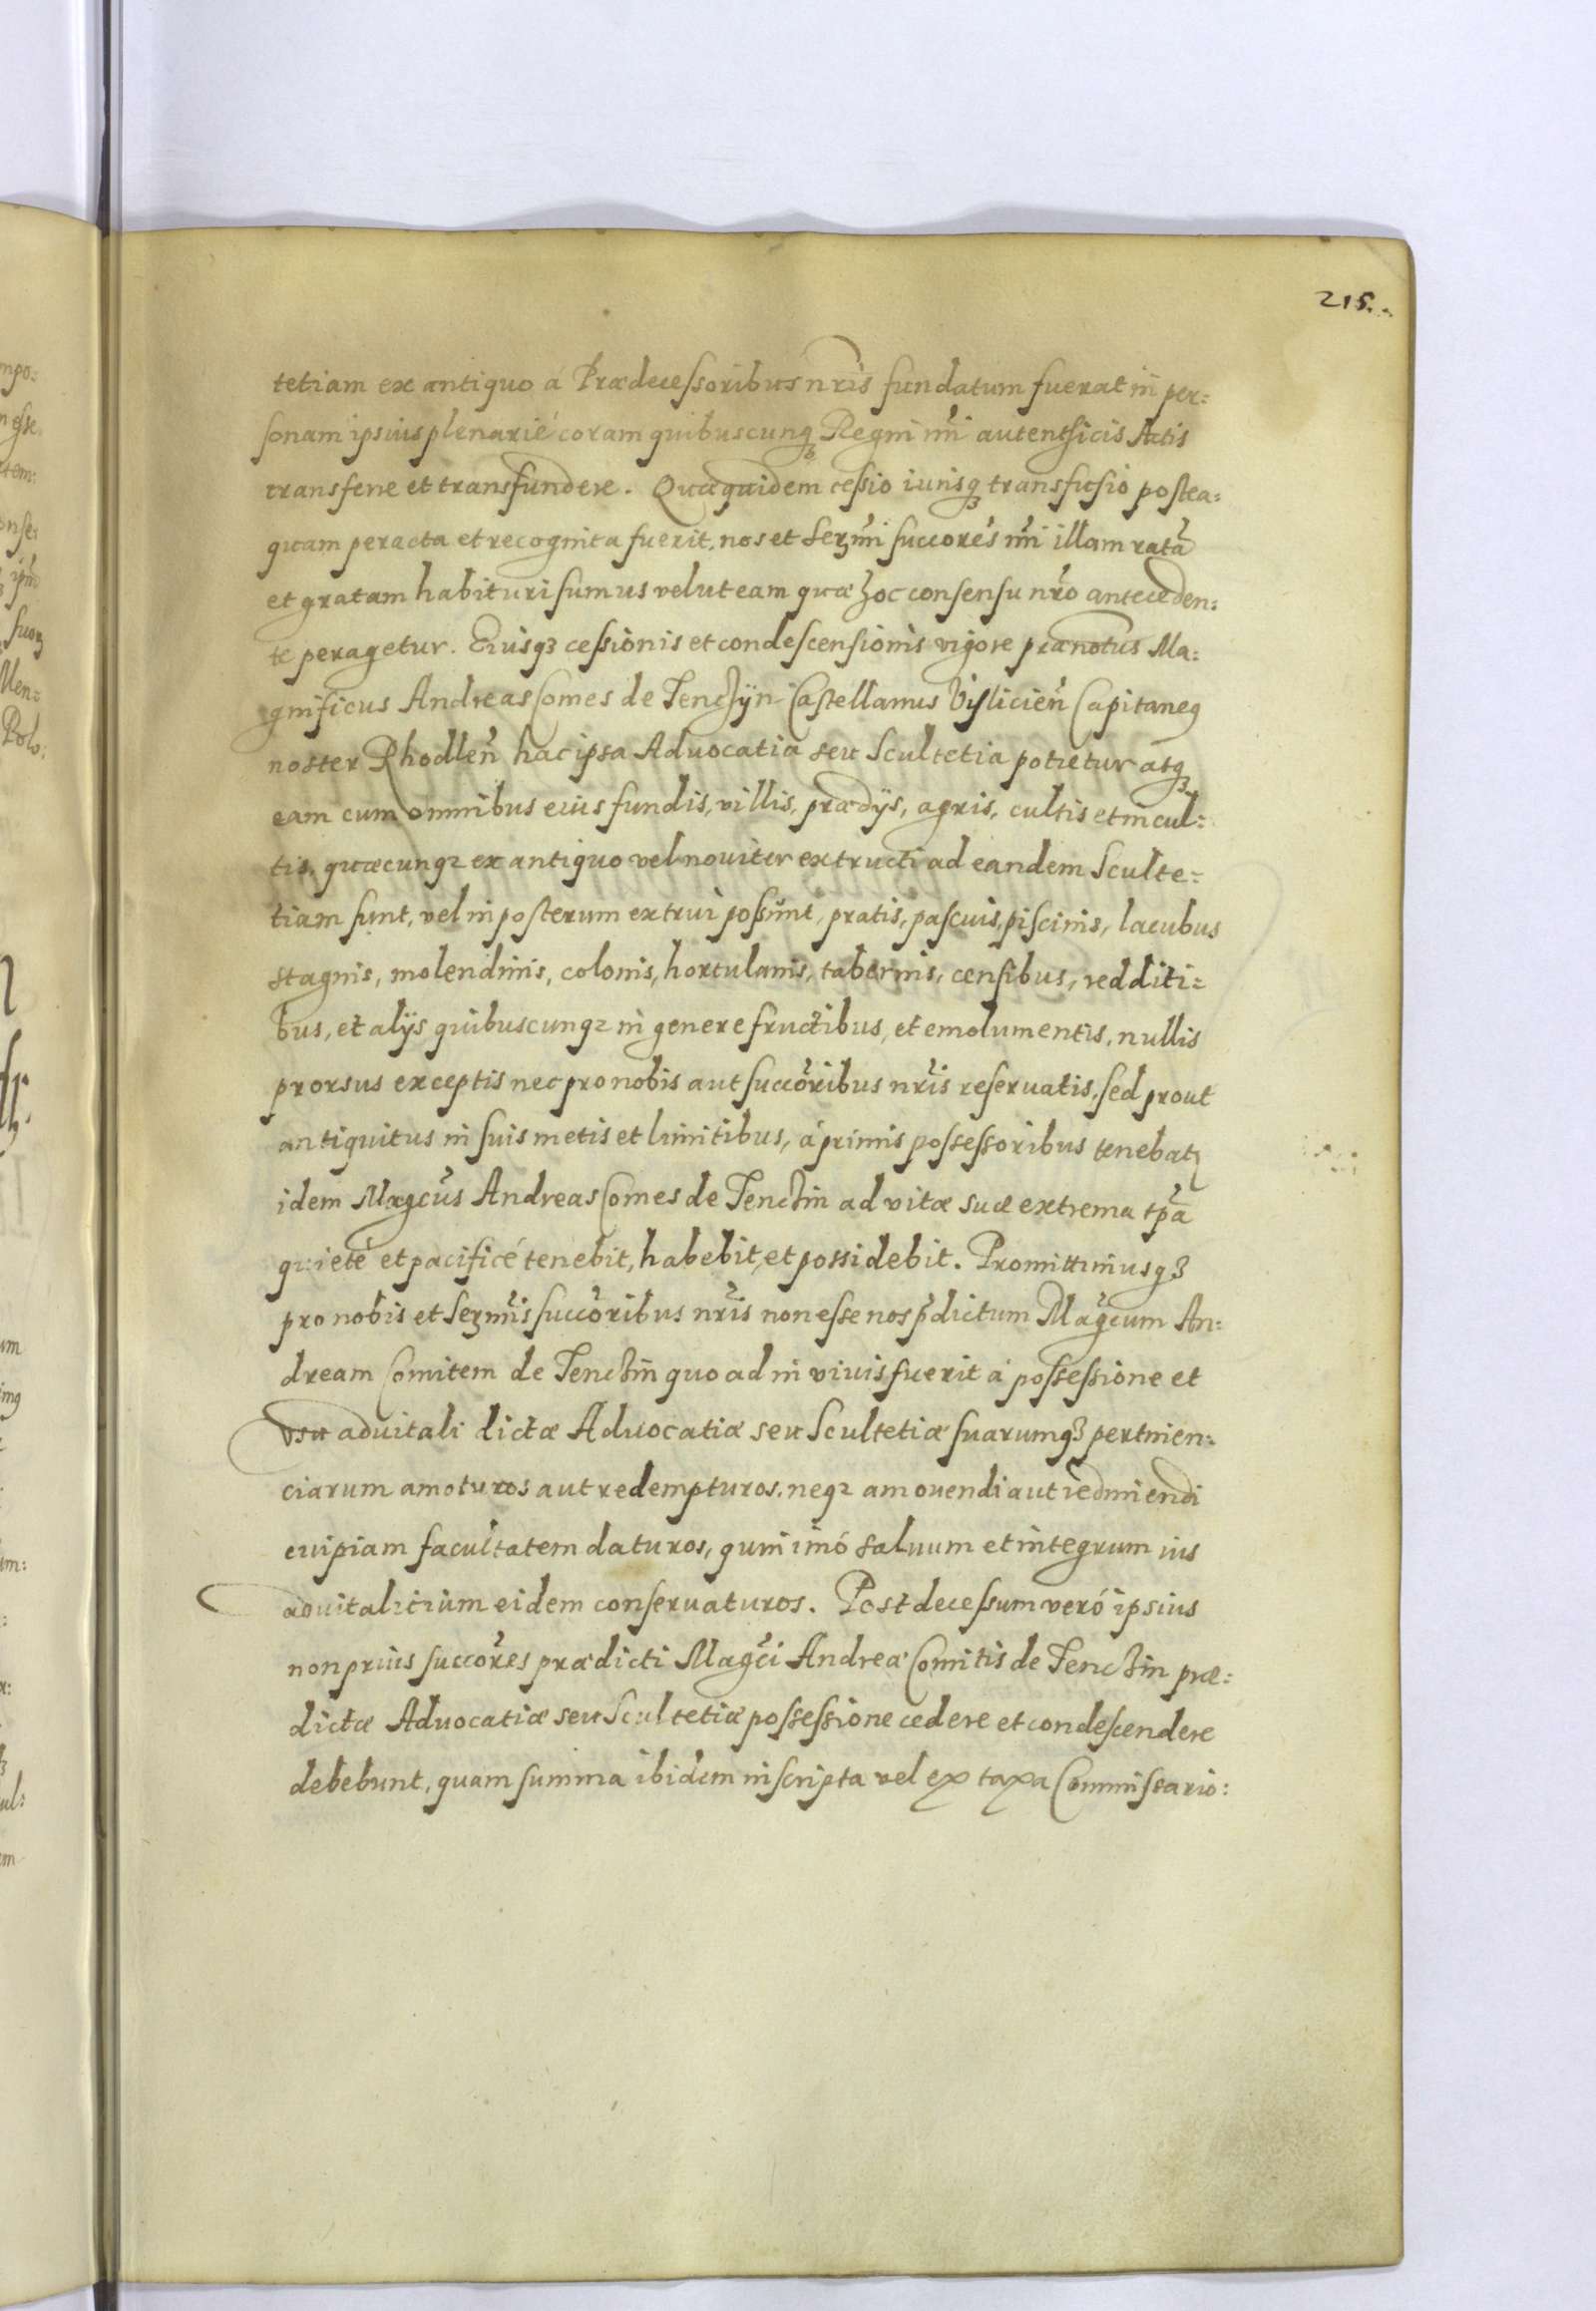 215.
tetiam ex antiquo á Prædecessoribus nr̃is fundatum fuerat in per=
sonam ipsius plenarié coram quibuscunqꝫ Regni nr̃i autenthicis Actis
transferre et transfundere. Quæquidem cessio iurisqꝫ transfusio postea=
quam peracta et recognita fuerit, nos et Serm̃i succores̃ nr̃i illam ratã
et gratam habituri sumus velut eam quæ hoc consensu nr̃o anteceden=
te peragetur. Eiusqꝫ cessionis et condescensionis vigore prænotus Ma=
gnificus Andreas Comes de Tenchÿn Castellanus Visliciẽn Capitaneꝰ
noster Rhodlẽn hac ipsa Aduocatia seu Scultetia potietur atqꝫ
eam cum omnibus eius fundis, villis, prædÿs, agris, cultis et incul=
tis, quæcunqꝫ ex antiquo vel nouiter extructi ad eandem Sculte=
tiam sunt, vel in posterum extrui possunt, pratis, pascuis, piscinis, lacubus
stagnis, molendinis, colonis, hortulanis, tabernis, censibus, redditi=
bus, et alÿs quibuscunqꝫ in genere fructibus, et emolumentis, nullis
prorsus exceptis nec pro nobis aut succõribus nr̃is reseruatis, sed prout
antiquitus in suis metis et limitibus, á primis possessoribus tenebatꝛ
idem Magcũs Andreas Comes de Tenchin ad vitæ suæ extrema tp̃a
quieté et pacificé tenebit, habebit, et possidebit. Promittimusqꝫ
pro nobis et Serm̃is succõribus nr̃is non esse nos p̃dictum Mag̃cum An=
dream Comitem de Tenchin quo ad in viuis fuerit á possessione et
vsu aduitali dictæ Aduocatiæ seu Scultetiæ suarumqꝫ pertinen=
ciarum amoturos aut redempturos, neqꝫ amouendi aut redimiendi
cuipiam facultatem daturos, quin imó saluum et integrum ius
aduitalitium eidem conseruaturos. Post decessum veró ipsius
non prius succõres prædicti Mag̃ci Andreæ Comitis de Tenchin præ=
dictæ Aduocatiæ seu Scultetiæ possessione cedere et condescendere
debebunt, quam summa ibidem inscripta vel ex taxa Commissario=